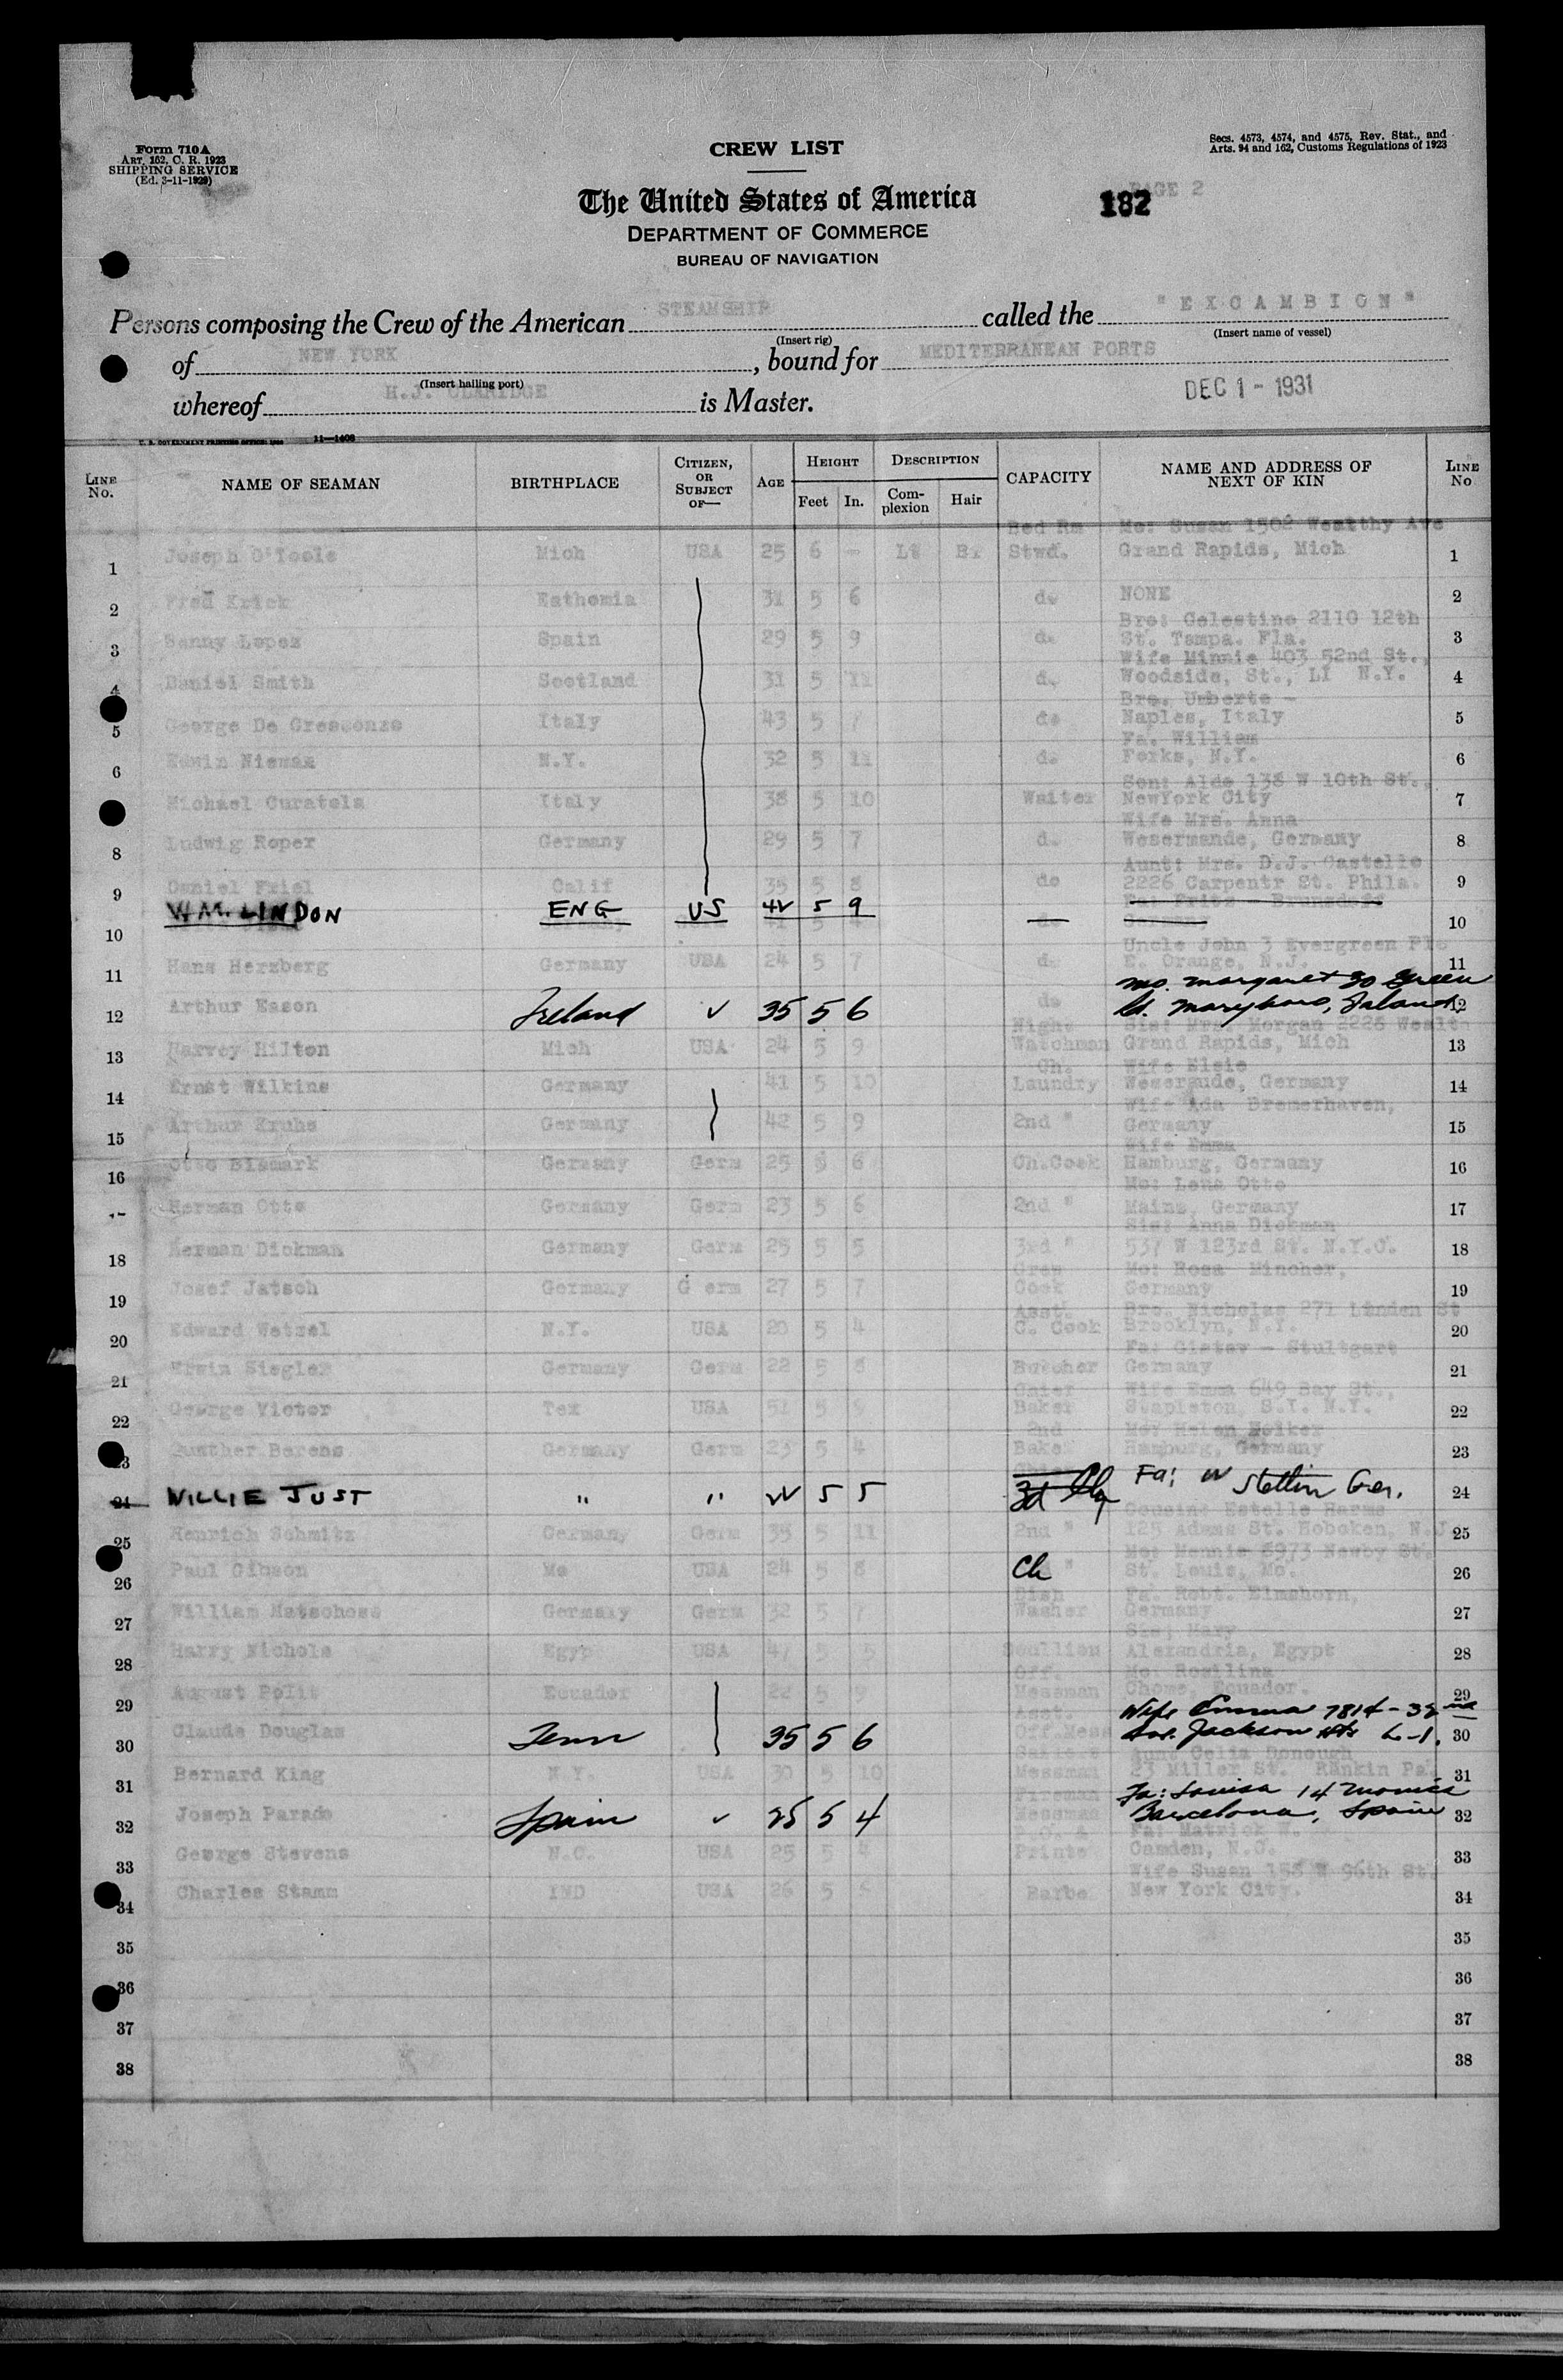 Form 710A
ART. 162, C. R. 1923
SHIPPING SERVICE
(Ed. 3-11-1929)
CREW LIST
Secs. 4573, 4574, and 4575, Rev. Stat., and
Arts. 94 and 162, Customs Regulations of 1923
PAGE 2
182
The United States of America
DEPARTMENT OF COMMERCE
BUREAU OF NAVIGATION
Persons composing the Crew of the American STEAMSHIP called the "EXCAMBION"
(Insert rig) (Insert name of vessel)
of NEW YORK, bound for MEDITERRANEAN PORTS
(Insert hailing port)
whereof H.J. CLARIDGE is Master. DEC 1 - 1931
U. S. GOVERNMENT PRINTING OFFICE 11-1408
LINE No. NAME OF SEAMAN BIRTHPLACE CITIZEN, OR SUBJECT OF— AGE HEIGHT Feet In. DESCRIPTION Complexion Hair CAPACITY NAME AND ADDRESS OF NEXT OF KIN LINE No
Bed Rm Mo: Susan 1502 Wealthy Ave
1 Joseph O'Toole Mich USA 25 6 — Lt Br Stwd. Grand Rapids, Mich 1
2 Fred Krick Esthomia 31 5 6 do NONE 2
Bro: Celestino 2110 12th
3 Benny Lopez Spain 29 5 9 do St. Tampa. Fla. 3
Wife Minnie 403 52nd St.,
4 Daniel Smith Scotland 31 5 11 do Woodside, St., LI N.Y. 4
Bro. Umberto —
5 George De Italy 43 5 7 do Naples, Italy 5
Fa. William
6 Edwin Nieman N.Y. 32 5 11 do Forks, N.Y. 6
Son: Aldo 138 W 10th St.,
Michael Curatola Italy 38 5 10 Waiter NewYork City 7
Wife Mrs. Anna
8 Ludwig Roper Germany 29 5 7 do Wesermande, Germany 8
Aunt: Mrs. D.J. Castello
9 Daniel Friel Calif 35 5 8 do 2226 Carpentr St. Phila. 9
Fa: Fritz —
10 WM. LINDON ENG US 42 5 9 do Germany 10
Uncle John 3 Evergreen Plc
11 Hans Herzberg Germany USA 24 5 7 do E. Orange, N.J. 11
Mo. Margaret 30 Green
12 Arthur Eason Ireland ✓ 35 5 6 do St. Maryboro, Ireland 12
Night Sis: Mrs. Morgan 2226 Wealth
13 Harvey Hilton Mich USA 24 5 9 Watchman Grand Rapids, Mich 13
Ch. Wife Elsie
14 Ernst Wilkins Germany 41 5 10 Laundry Wesergude, Germany 14
Wife Ada Bremerhaven,
15 Arthur Kruhs Germany 42 5 9 2nd " Germany 15
Wife Emma
16 Otto Bismark Germany Germ 25 5 6 Ch.Cook Hamburg, Germany 16
Mo: Lena Otto
Herman Otto Germany Germ 23 5 6 2nd " Mainz, Germany 17
Sis: Anna Dickman
18 Herman Dickman Germany Germ 25 5 5 3rd " 537 W 123rd St. N.Y.C. 18
Crew Mo: Rosa Mincher,
19 Josef Jatsch Germany G erm 27 5 7 Cook Germany 19
Asst. Bro. Nicholas 271 Linden St
20 Edward Wetzel N.Y. USA 20 5 4 C. Cook Brooklyn, N.Y. 20
Fa: — Stultgart
21 Erwin Siegler Germany Germ 22 5 8 Butcher Germany 21
Chief Wife Emma 649 Bay St.,
22 George Victor Tex USA 51 5 Baker Stapleton, S.I. N.Y. 22
2nd Mo: Helen
23 Gunther Berens Germany Germ 23 5 4 Baker Hamburg, Germany 23
24 WILLIE JUST " " 22 5 5 3d Fa: W Stettin Ger. 24
Cousin Estelle Harms
25 Henrich Schmitz Germany Germ 35 5 11 2nd " 125 Adams St. Hoboken, N.J 25
Mo: Mennie 5973 Newby St.
26 Paul Gibson Mo USA 24 5 8 Ch " St. Louis, Mo. 26
Dish Fa. Robt. Elmshorn,
27 William Matschoss Germany Germ 32 5 7 Washer Germany 27
Sis: Mary
28 Harry Nichols Egyp USA 47 5 5 Scullion Alexandria, Egypt 28
Off. Mo: Rosilina
29 August Polit Ecuador 22 5 9 Messman Chome, Ecuador. 29
Asst. Wife Emma 7814 - 32nd
30 Claude Douglas Tenn 35 5 6 Off.Mess Ave. Jackson Hts L-I. 30
Sailors Aunt Celia Donough
31 Bernard King N.Y. USA 30 5 10 Messman 23 Miller St. Rankin Pa. 31
Fireman Fa: Louisa 14
32 Joseph Parado Spain ✓ 25 5 4 Messman Barcelona, Spain 32
Fa: Matrick W.
33 George Stevens N.C. USA 25 5 4 Printe Camden, N.C. 33
Wife Susan 158 W 96th St.
34 Charles Stamm IND USA 26 5 Barbe New York City. 34
35 35
36 36
37 37
38 38